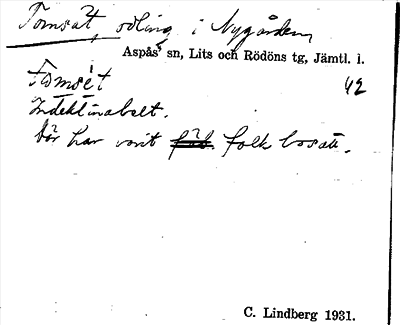 Tomsät, odling i Nygården,
Aspås sn, Lits och Rödöns tg, Jämtl. l.
42
Indeklinabelt.
Där har varit folk bosatt.
C. Lindberg 1931.